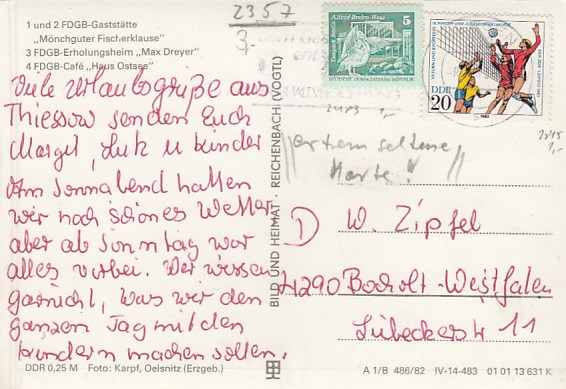 1 und 2 FDGB-Gaststätte
„Mönchguter Fischerklause"
3 FDGB-Erholungsheim „Max Dreyer"
4 FDGB-Café „Haus Ostsee"
Viele Urlaubsgrüße aus
Thiessow senden Euch
Margit, Lutz u kinder
Am sonnabend hatten
wir noch schönes Wetter
aber ab Sonntag war
alles vorbei. Wir wissen
garnicht, was wir den
ganzen Tag mit den
kindern machen sollen.
DDR 0,25 M Foto: Karpf, Oelsnitz (Erzgeb.)
BILD UND HEIMAT · REICHENBACH (VOGTL)
2357
3,-
Alfred-Brehm-Haus
5
DDR
20
1,-
2815
1,-
extrem seltene
Karte!
D
W. Zipfel
4290 Bocholt-Westfalen
Lübeckerstr 11
A 1/B 486/82 IV-14-483 01 01 13 631 K